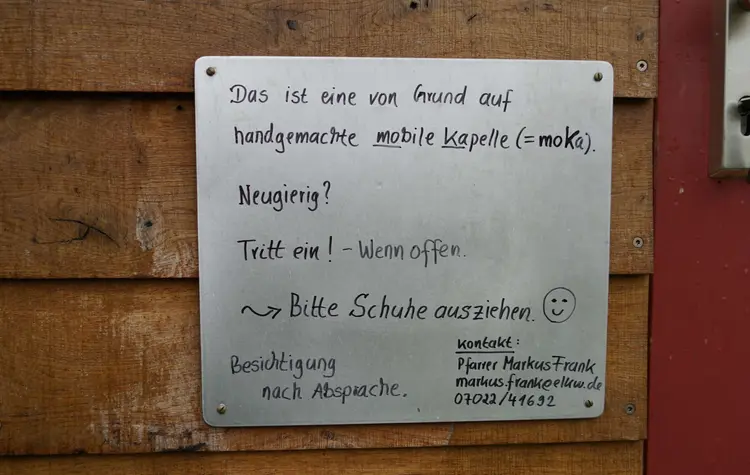 Das ist eine von Grund auf
handgemachte mobile Kapelle (= moKa).
Neugierig?
Tritt ein! – Wenn offen.
Bitte Schuhe ausziehen.
Besichtigung
nach Absprache.
Kontakt:
Pfarrer Markus Frank
markus.frank@elkw.de
07022/41692